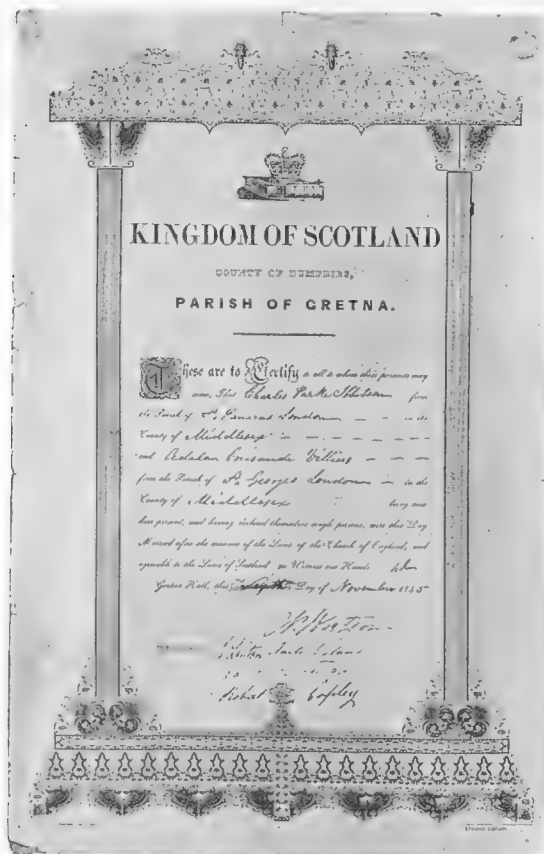 KINGDOM OF SCOTLAND
COUNTY OF DUMFRIES,
PARISH OF GRETNA.
These are to Certify to all to whom these presents may
come, That Charles Parke Ibbetson from
the Parish of St Pancras London in the
County of Middlesex
and Adelan Villiers
from the Parish of St Georges London in the
County of Middlesex being now
here present, and having declared themselves single persons, were this Day
Married after the manner of the Laws of the Church of England, and
agreeable to the Laws of Scotland as Witness our Hands
Gretna Hall, this Day of November 1845
Charles Parke Ibbetson
Robert Copley